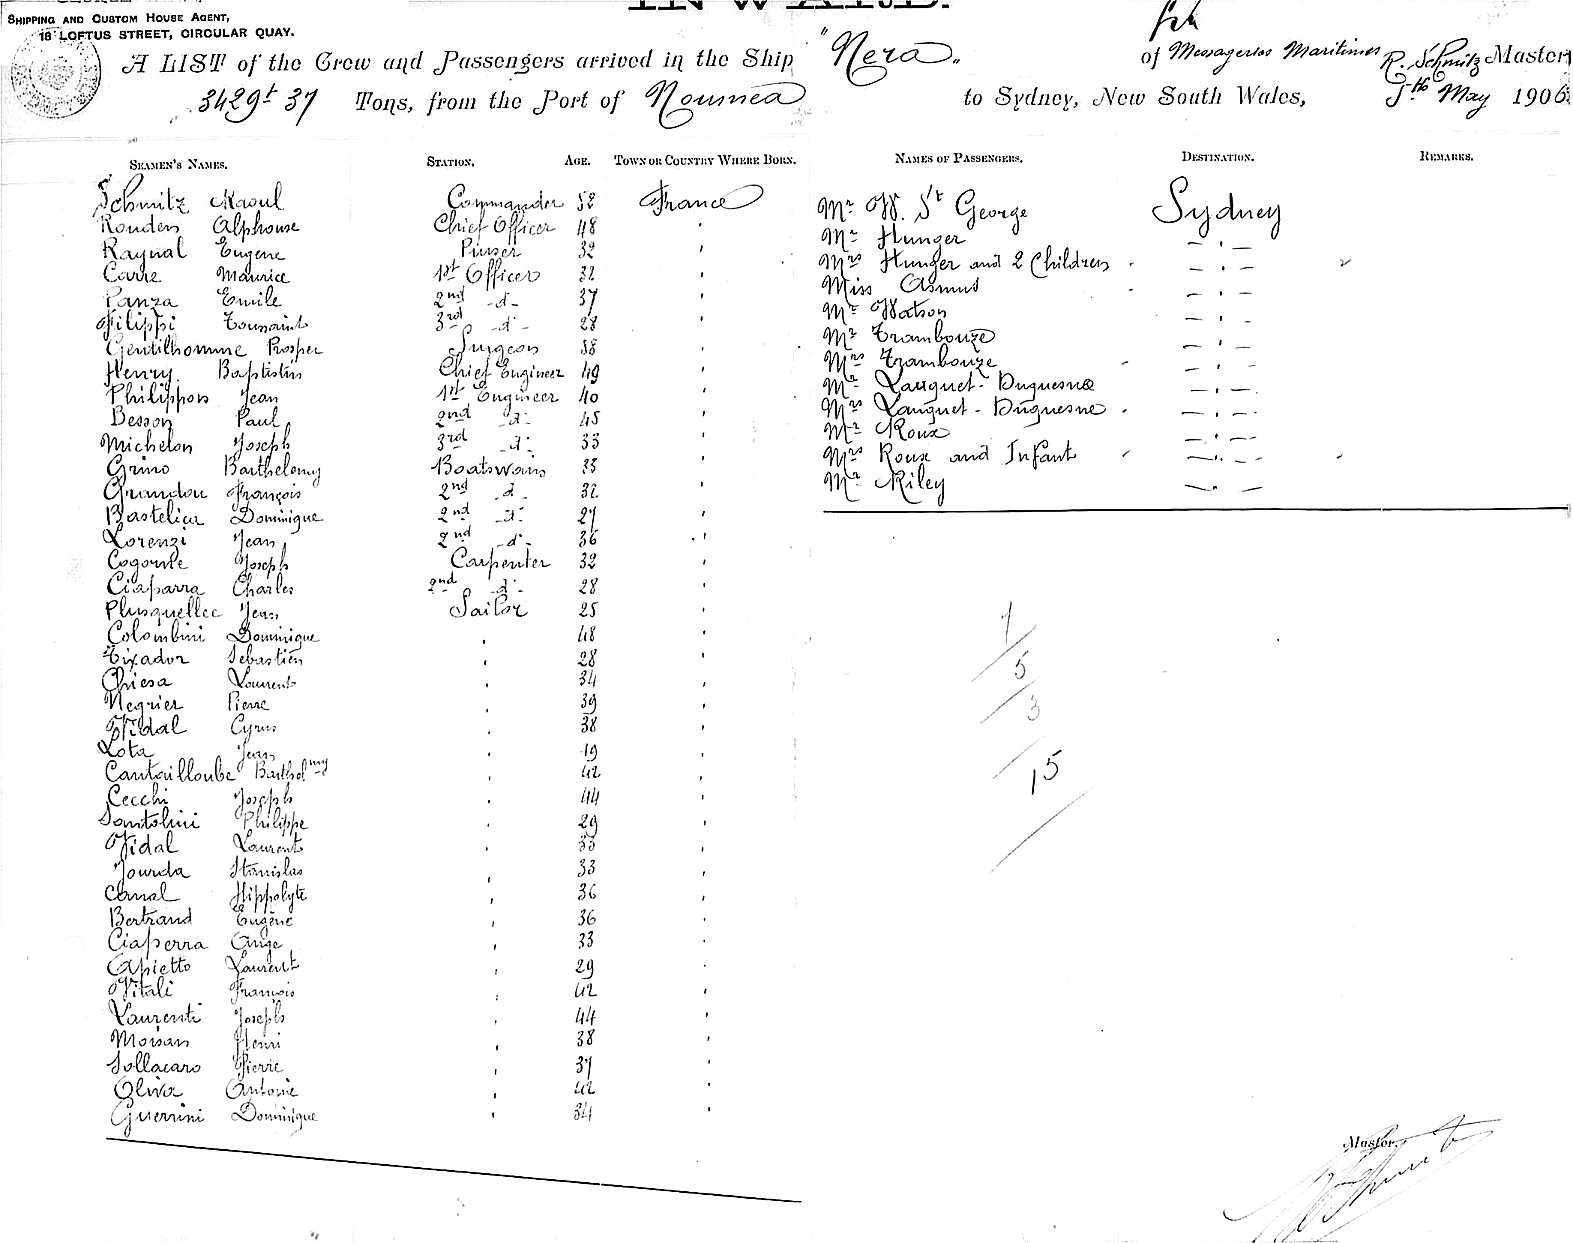 SHIPPING AND CUSTOM HOUSE AGENT,
16 LOFTUS STREET, CIRCULAR QUAY.
INWARD.
A LIST of the Crew and Passengers arrived in the Ship "Nera" of Messageries Maritimes R. Schmitz Master
3429 t 37 Tons, from the Port of Noumea to Sydney, New South Wales, May 1906
SEAMEN'S NAMES. STATION. AGE. TOWN OR COUNTRY WHERE BORN.
Schmitz Raoul Commander 52 France
Rouden Alphonse Chief Officer 48 "
Raynal Eugene Purser 32 "
Carre Maurice 1st Officer 32 "
Panza Emile 2nd -d- 37 "
Filippi Toussaint 3rd -d- 28 "
Gentilhomme Prosper Surgeon 38 "
Henry Baptistin Chief Engineer 49 "
Philippon Jean 1st Engineer 40 "
Besson Paul 2nd -d- 45 "
Michelon Joseph 3rd -d- 33 "
Grino Barthelemy Boatswain 33 "
Grandou François 2nd -d- 32 "
Bastelica Dominique 2nd -d- 27 "
Lorenzi Jean 2nd -d- 36 "
Cogorne Joseph Carpenter 32 "
Ciaparra Charles 2nd -d- 28 "
Plusquellec Jean Sailor 25 "
Colombini Dominique " 48 "
Tixador Sebastien " 28 "
Chiesa Laurent " 34 "
Negrier Pierre " 39 "
Vidal Cyrus " 38 "
Lota Jean " 19 "
Cantailloube Barthelmy " 42 "
Cecchi Joseph " 44 "
Santolini Philippe " 29 "
Vidal Laurent " 33 "
Jourda Stanislas " 33 "
Canal Hippolyte " 36 "
Bertrand Eugène " 36 "
Ciaperra Ange " 33 "
Apietto Laurent " 29 "
Vitali François " 42 "
Laurenti Joseph " 44 "
Moisan Henri " 38 "
Sollacaro Pierre " 37 "
Oliva Antoine " 42 "
Guerrini Dominique " 34 "
NAMES OF PASSENGERS. DESTINATION. REMARKS.
Mr W. St George Sydney
Mr Hunger - " -
Mrs Hunger and 2 Children - " -
Miss Asmus - " -
Mr Watson - " -
Mr Trambouze - " -
Mrs Trambouze - " -
Mr Lauguet-Duquesne - " -
Mrs Lauguet-Duquesne - " -
Mr Roux - " -
Mrs Roux and Infant - " -
Mr Riley - " -
7
5
3
15
Master.